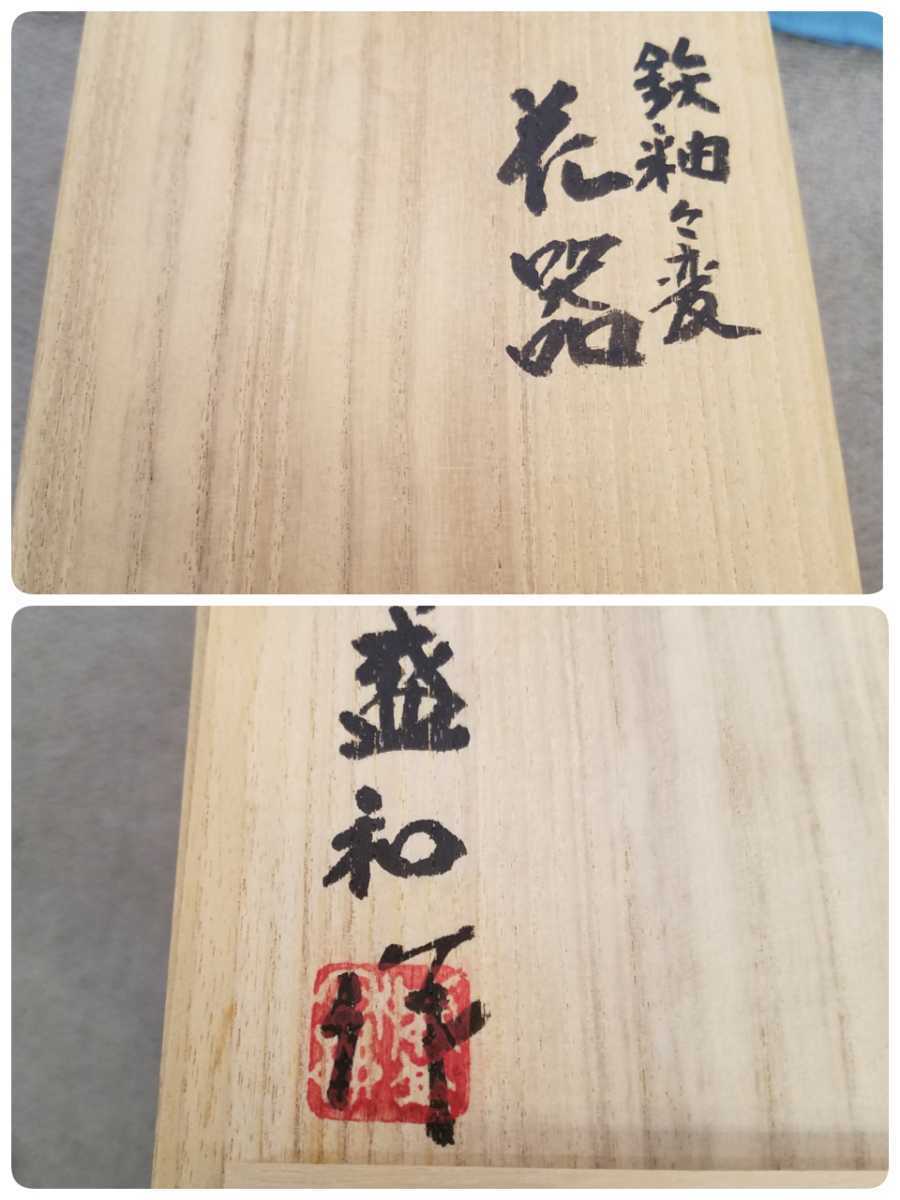 鉄釉々変
花器
盛和作